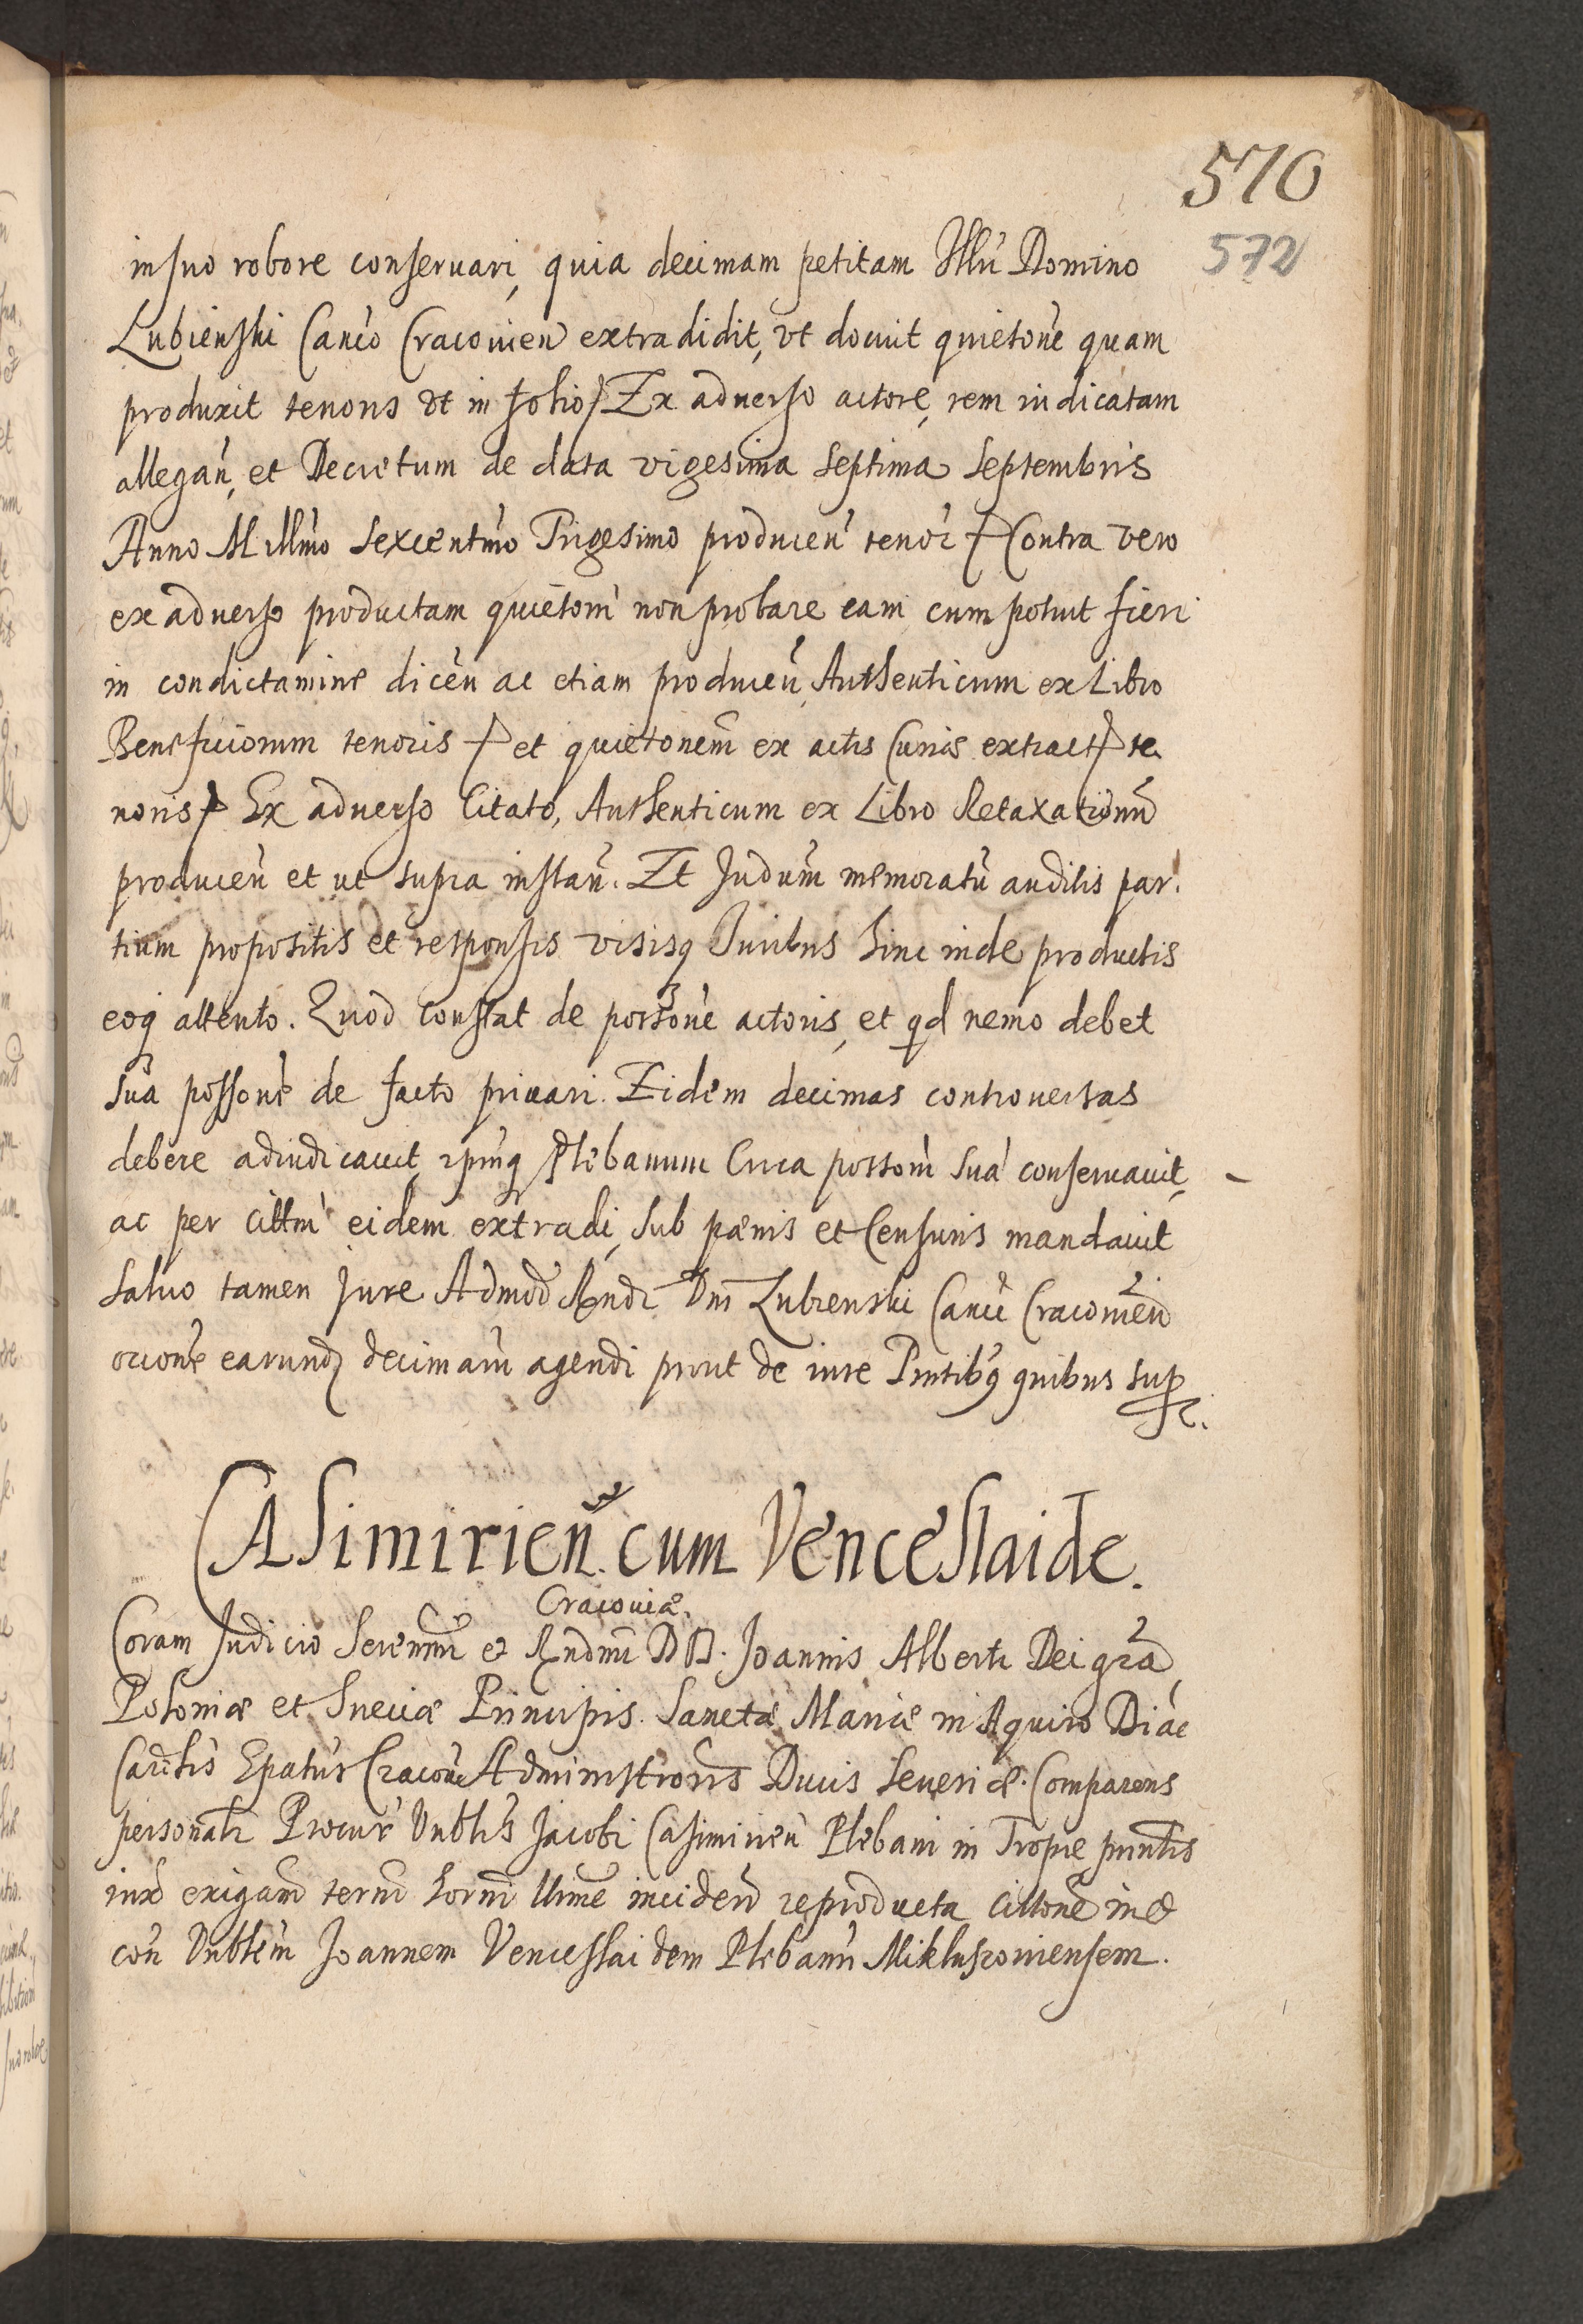 570
572
in suo robore conseruari, quia decimam petitam Illri Domino
Lubienski Canco Cracouien extradidit, vt docuit quietone quam
produxit tenoris vt in folio Ex aduerso actore, rem iudicatam
allegan, et Decretum de data vigesima Septima Septembris
Anno Millmo Sexcentmo Trigesimo producen tenor Contra vero
ex aduerso productam quietom non probare eam cum potuit fieri
in condictamine dicen ac etiam producen Authenticum ex Libro
Beneficiorum tenoris et quietonem ex actis Curiae extract te
noris Ex aduerso Citato, Authenticum ex Libro Retaxationu
producen et ut supra instan. Et Judium memoratu auditis par
tium propositis et responsis visisq Juribus hinc inde productis
eoq attento. Quod constat de possone actoris, et qd nemo debet
sua possone de facto priuari. Eidem decimas controuersas
debere adiudicauit ipmq Plebanum Circa possom sua conseruauit,
ac per cittm eidem extradi, sub paenis et Censuris mandauit
saluo tamen Jure Admod Rndi Dni Lubienski Canci Cracouien
ocione earund decimaru agendi prout de iure Pntibq quibus sup
&c.
CASimirien. cum Venceslaide.
Cracouiae.
Coram Judicio Serenmi et Rndmi DD. Joannis Alberti Dei gra
Poloniae et Sueciae Principis. Sanctae Mariae in Aquiro Diac
Cardlis Epatus Cracouien Administroris Ducis Seueriae. Comparens
personalr Procur Vnblis Jacobi Casimirien Plebani in Tropie pnntis
iux exigam termi horni llime inciden reproducta cittone in &
con Vnblem Joannem Venceslaidem Plebanu Mikluszouiensem.